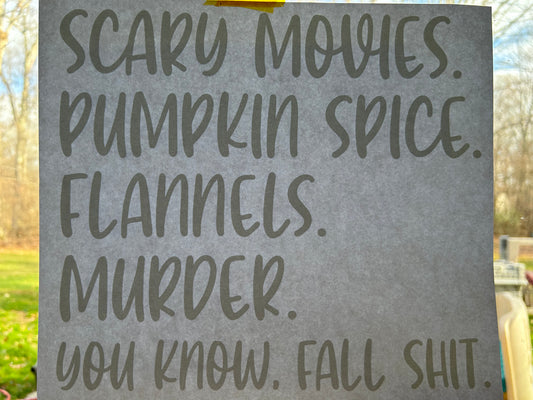 SCARY MOVIES.
PUMPKIN SPICE.
FLANNELS.
MURDER.
YOU KNOW. FALL SHIT.